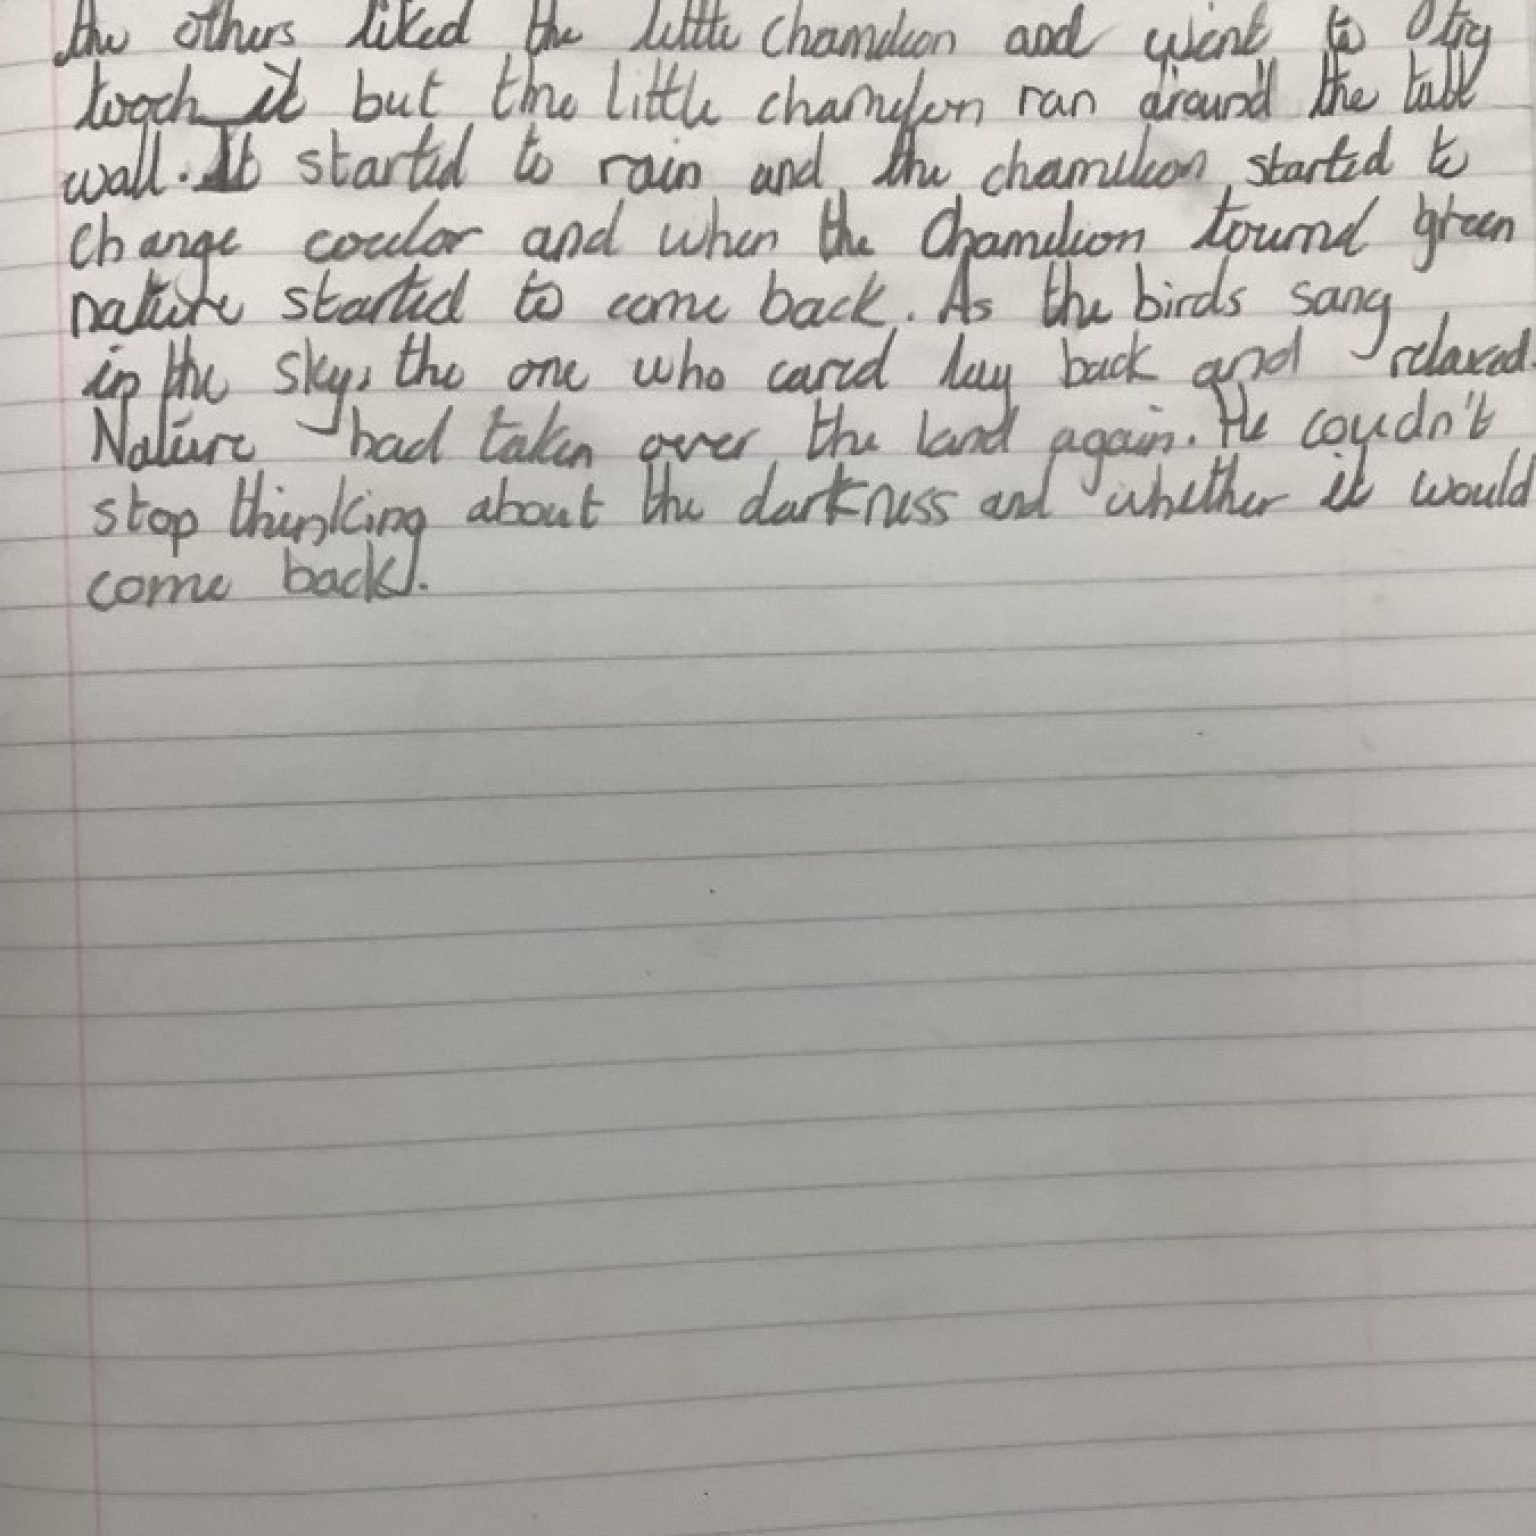 the others liked the little chameleon and went to try
tooch it but the little chameleon ran around the tall
wall. It started to rain and the chameleon started to
change coulor and when the Chameleon tournd green
nature started to come back. As the birds sang
in the sky, the one who cared lay back and relaxed.
Nature had taken over the land again. He coudn't
stop thinking about the darkness and whether it would
come back.